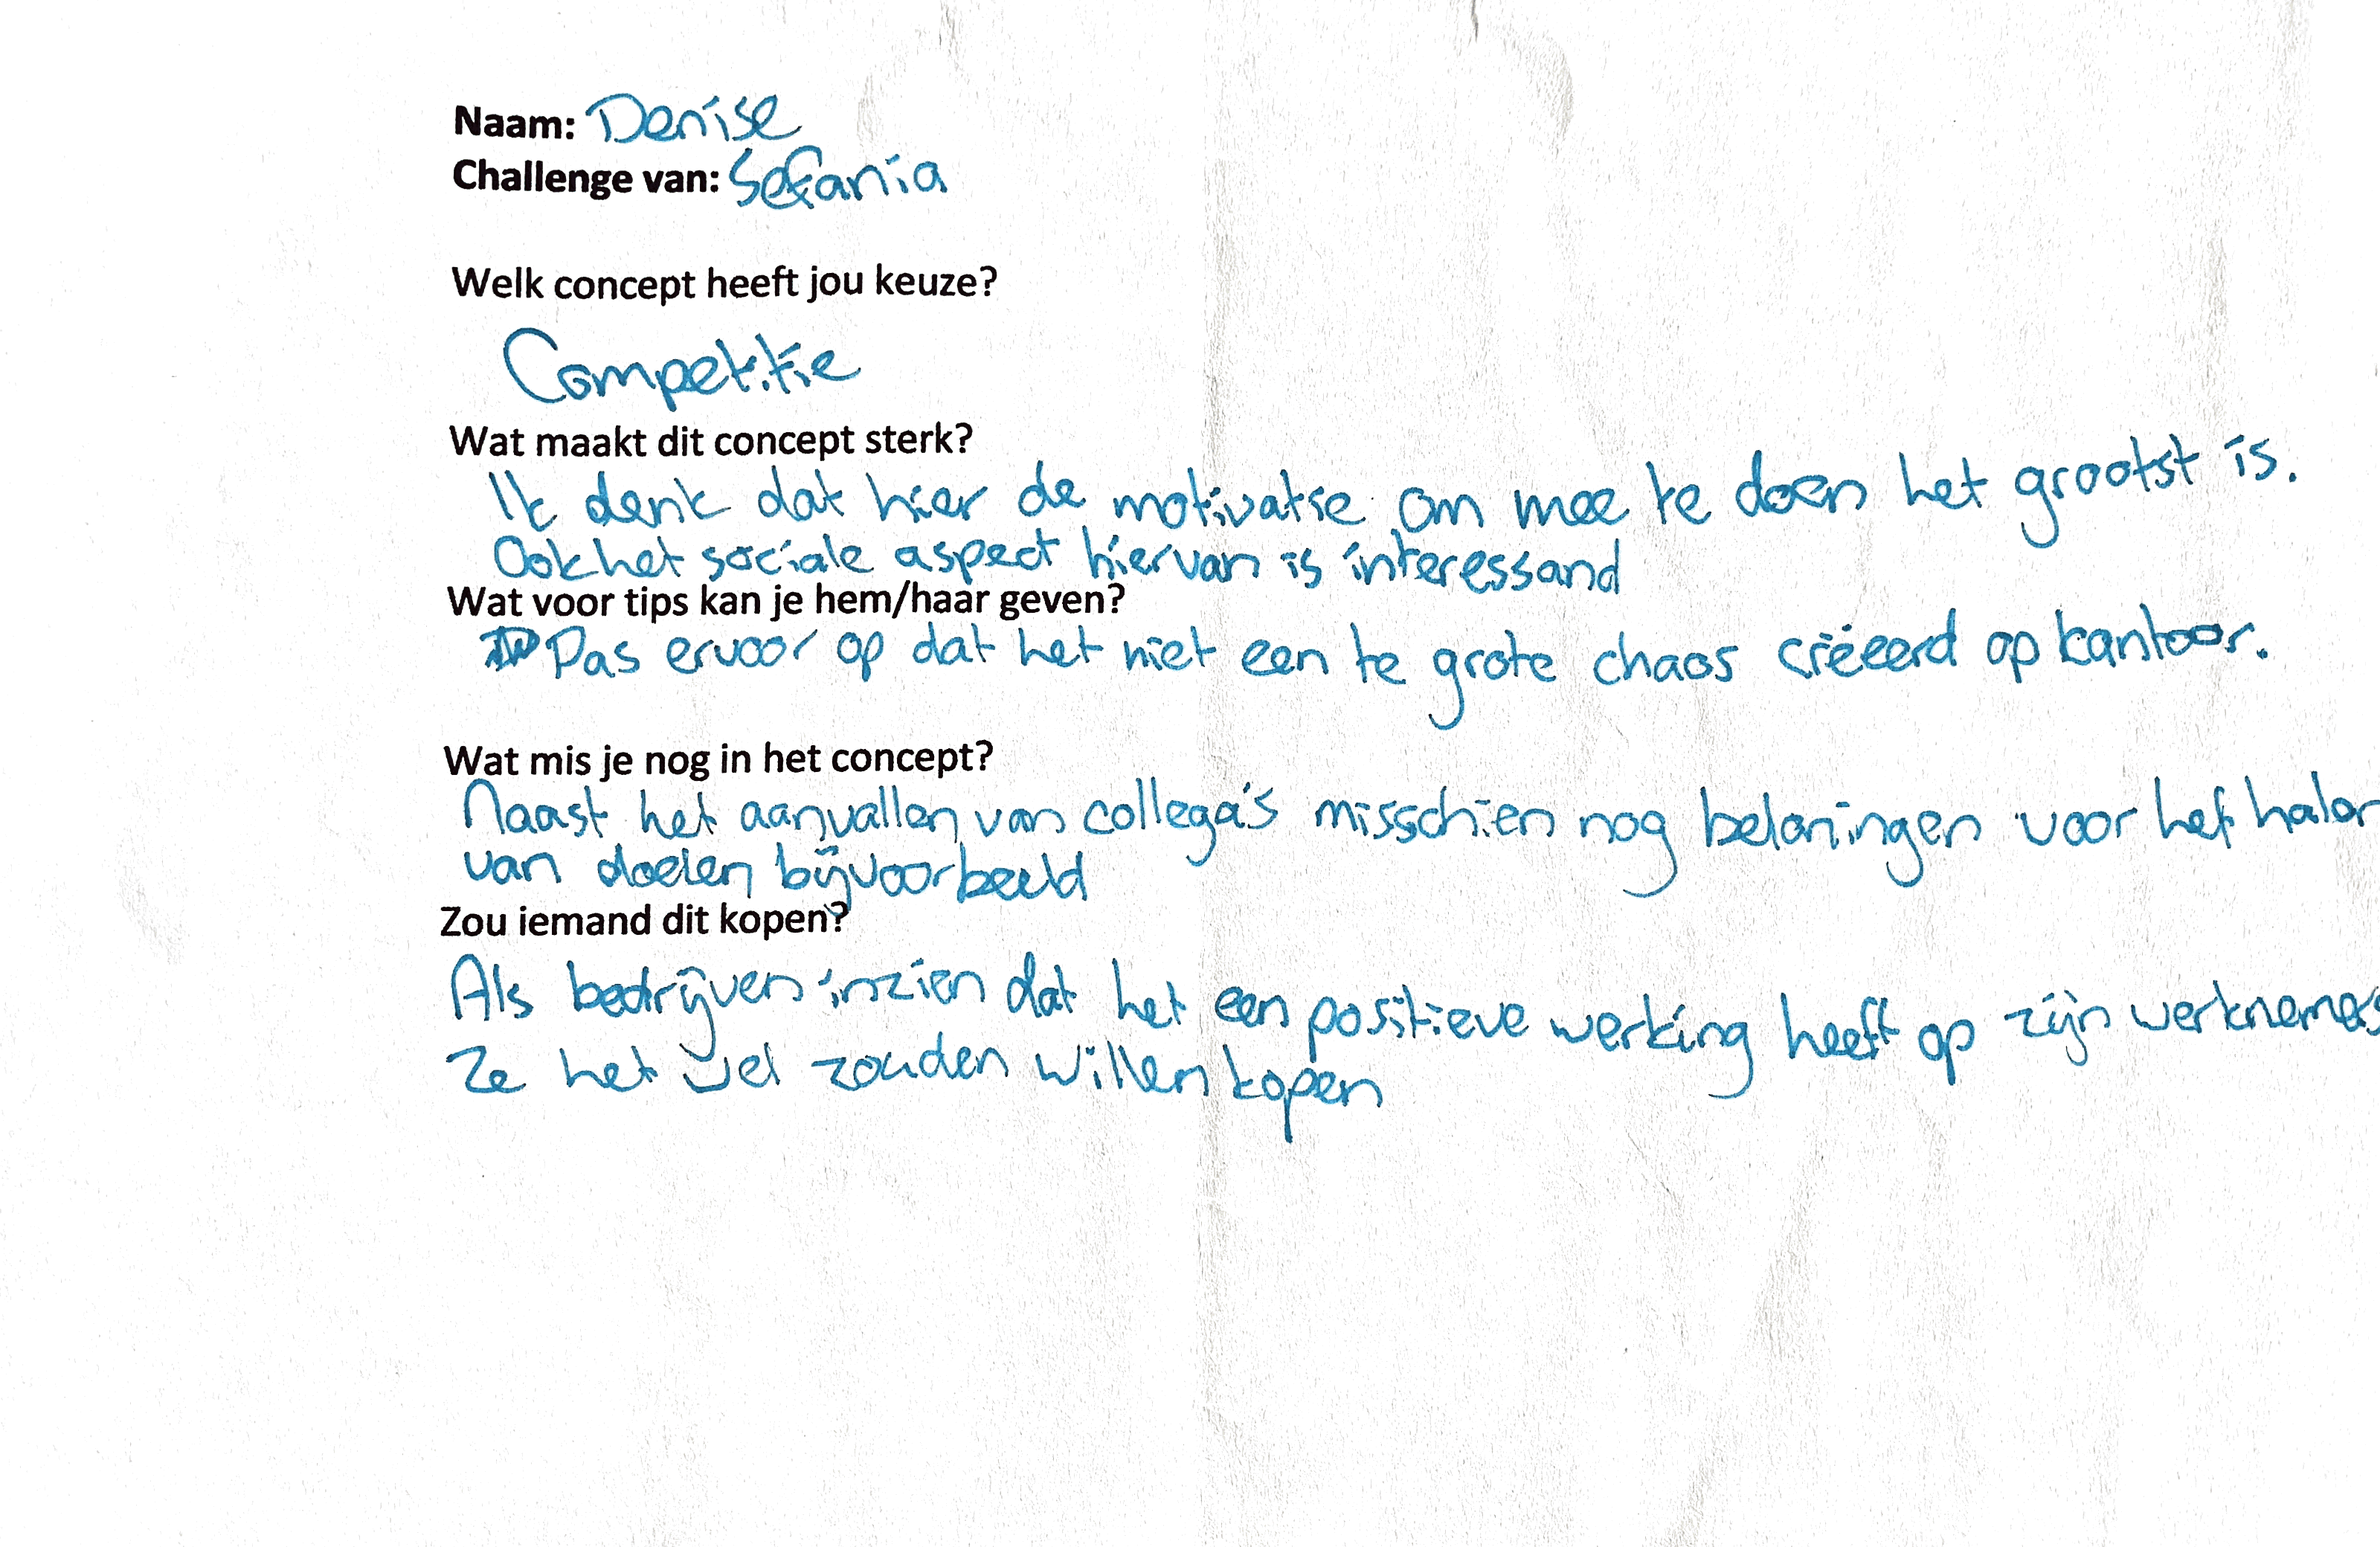 Naam: Denise
Challenge van: Sefania
Welk concept heeft jou keuze?
Competitie
Wat maakt dit concept sterk?
Ik denk dat hier de motivatie om mee te doen het grootst is.
Ook het sociale aspect hiervan is interessand
Wat voor tips kan je hem/haar geven?
Pas ervoor op dat het niet een te grote chaos creëerd op kantoor.
Wat mis je nog in het concept?
Naast het aanvallen van collega's misschien nog beloningen voor het halen
van doelen bijvoorbeeld
Zou iemand dit kopen?
Als bedrijven inzien dat het een positieve werking heeft op zijn werknemers
Ze het wel zouden willen kopen